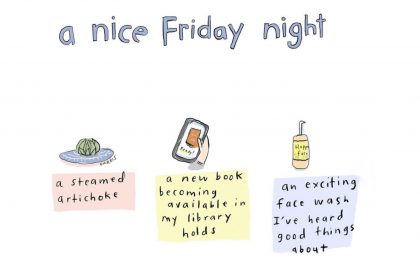 a nice Friday night
Ready!
Happy
Face
a steamed
artichoke
a new book
becoming
available in
my library
holds
an exciting
face wash
I've heard
good things
about